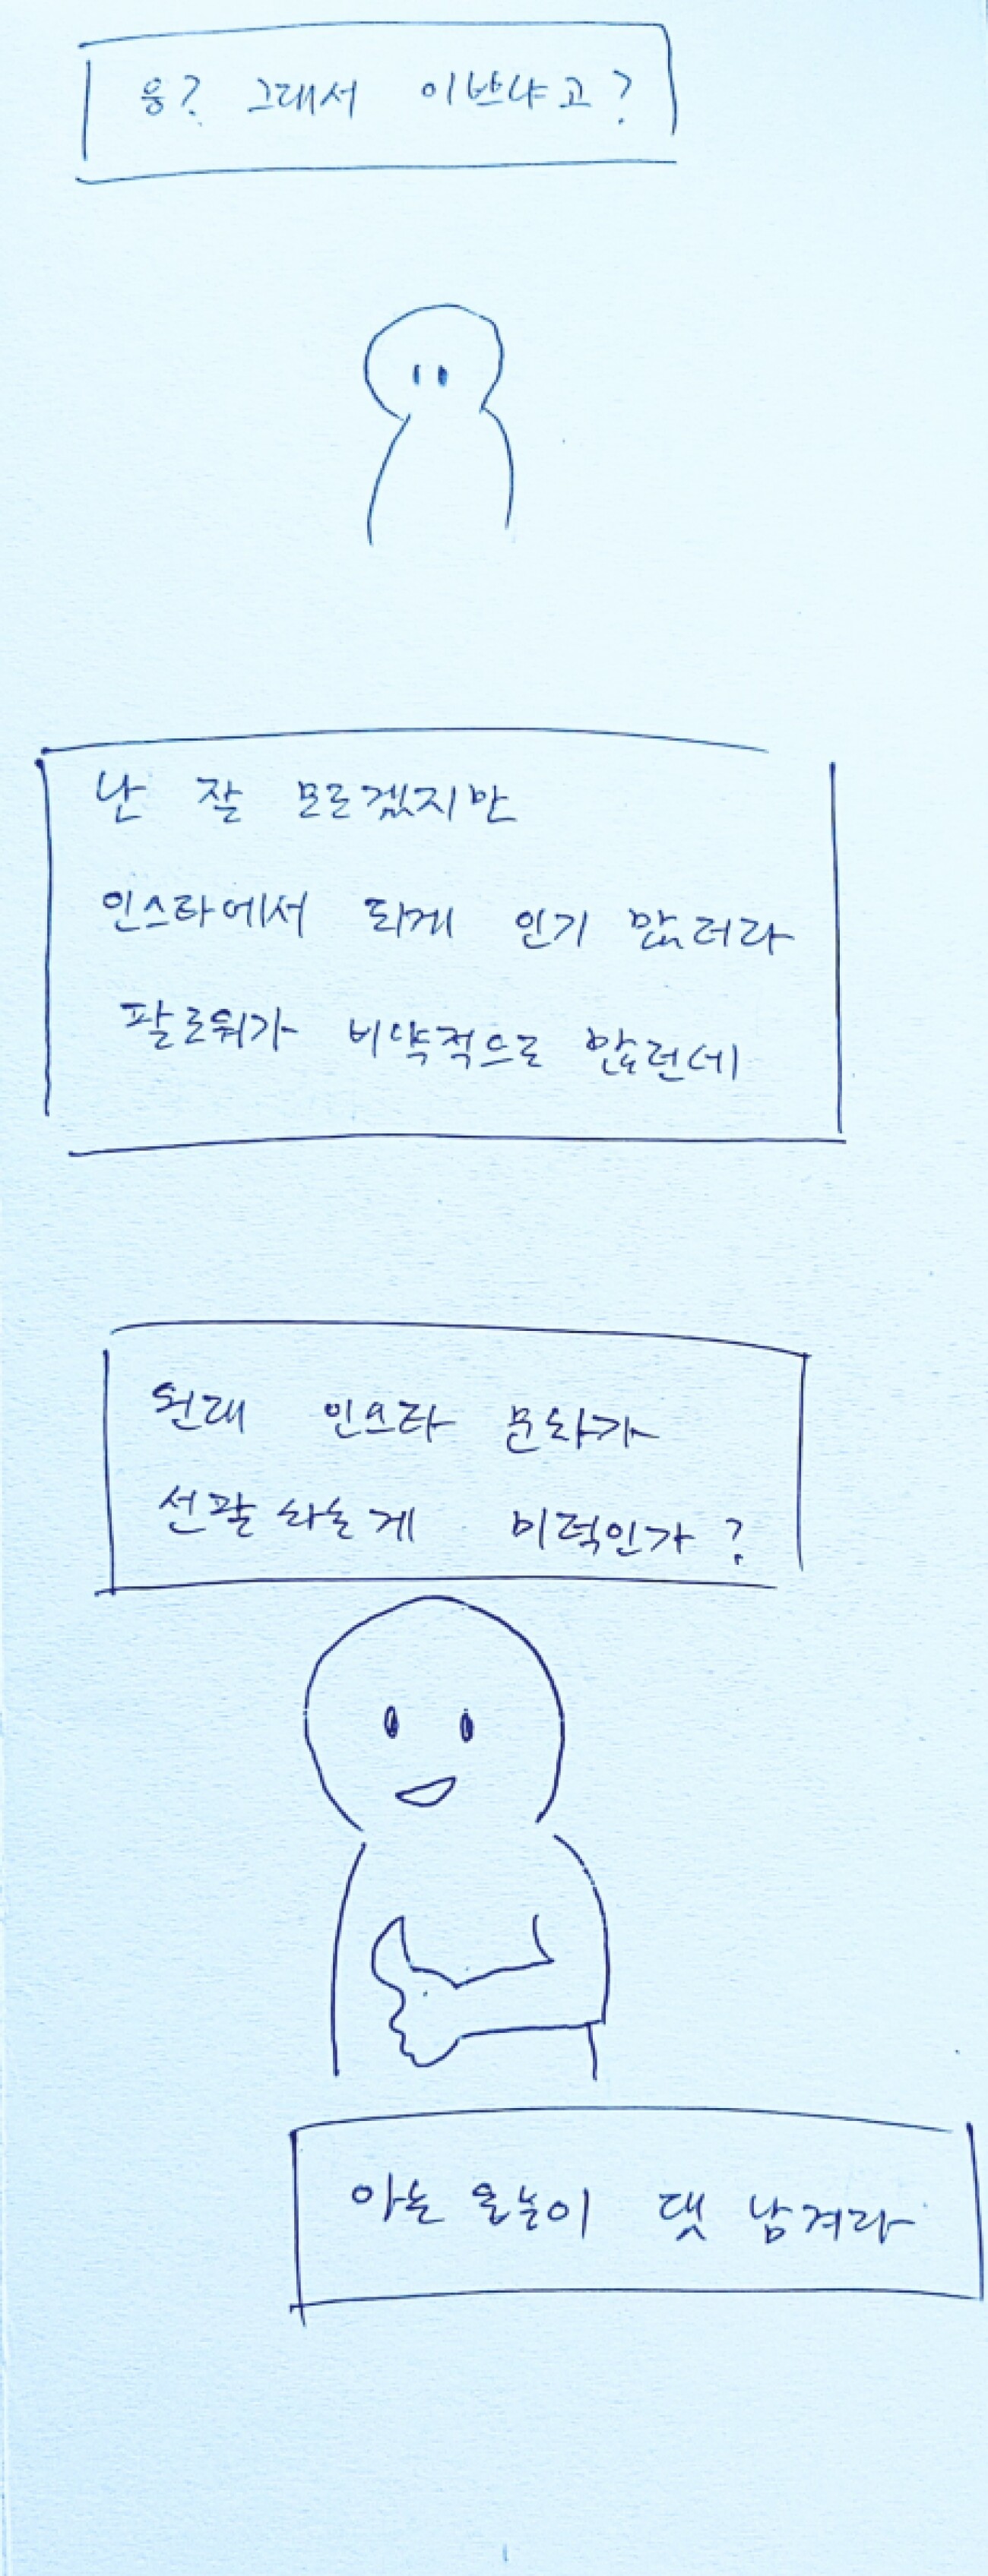 응? 그래서 이쁘냐고?
난 잘 모르겠지만
인스타에서 되게 인기 많더라
팔로워가 비약적으로 많던데
원래 인스타 문화가
선팔 하는게 미덕인가?
아는 놈이 댓 남겨라